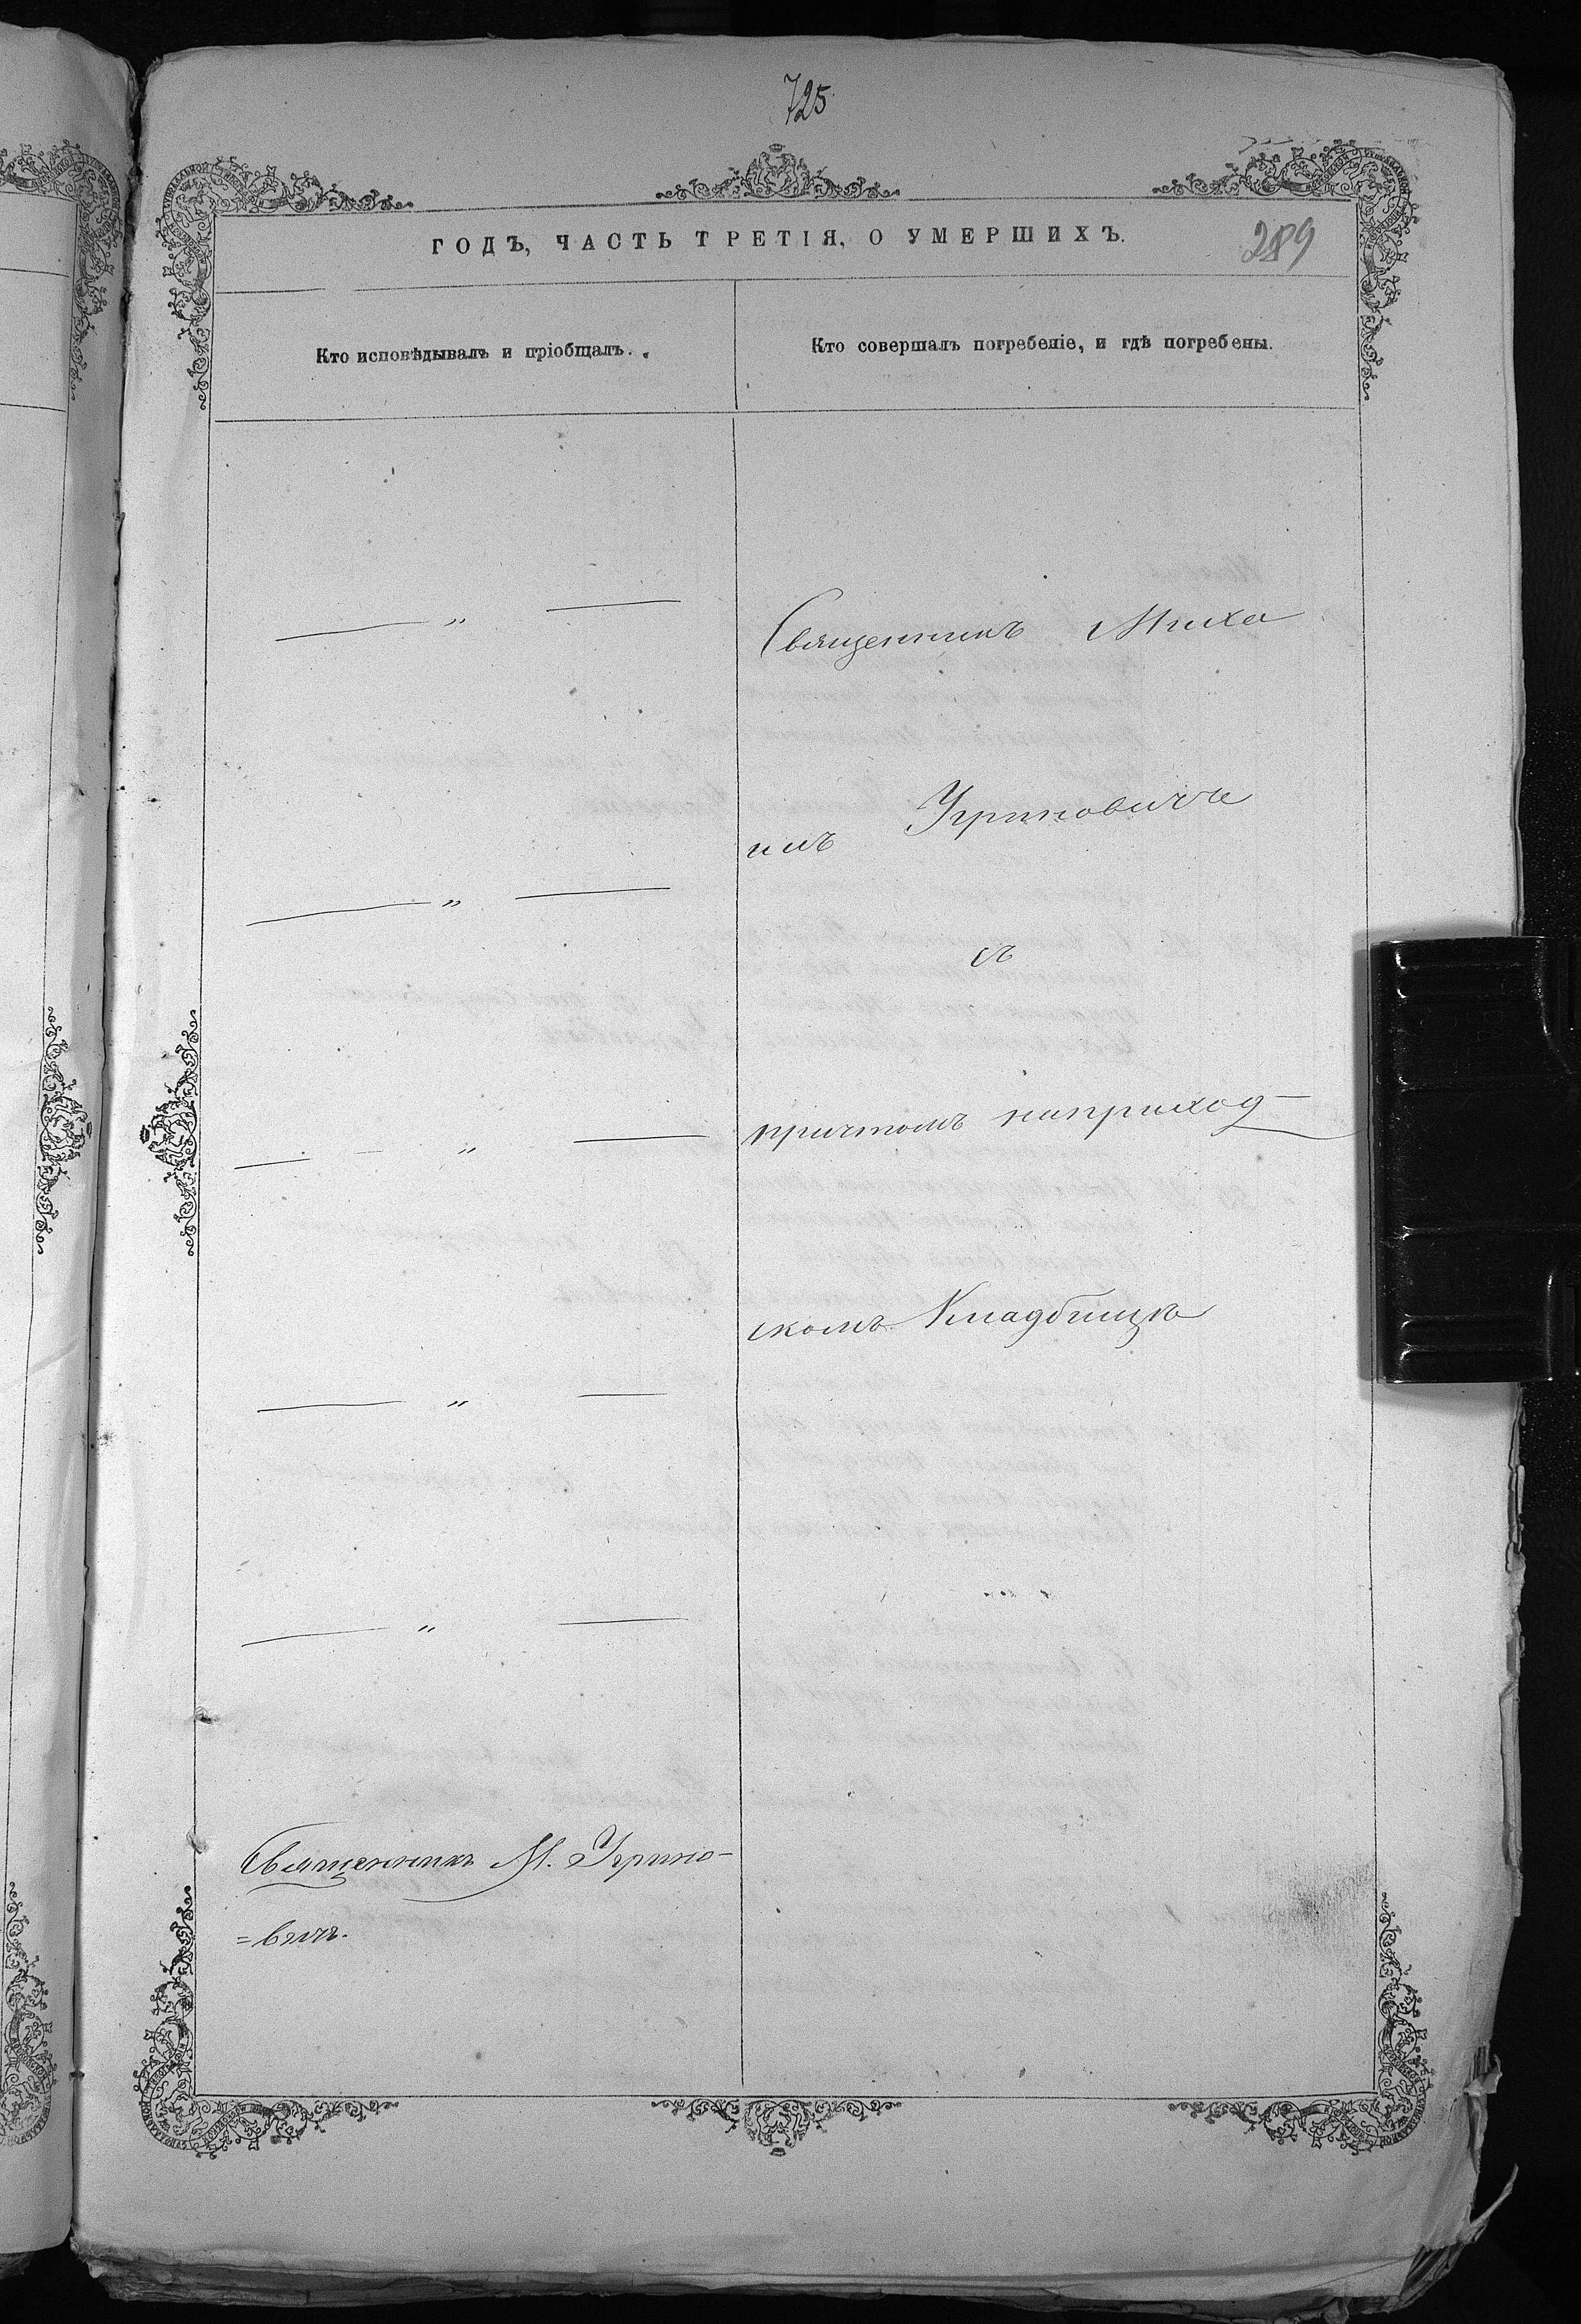 725
ГОДЪ, ЧАСТЬ ТРЕТІЯ, О УМЕРШИХЪ.
289
Кто исповѣдывалъ и пріобщалъ.
Кто совершалъ погребеніе, и гдѣ погребены.
— „ —
Священникъ Миха
илъ Угриновичъ
— „ —
съ
— „ —
причтомъ наприход-
скомъ Кладбищѣ
— „ —
— „ —
Священникъ М. Угрино-
=вичъ.